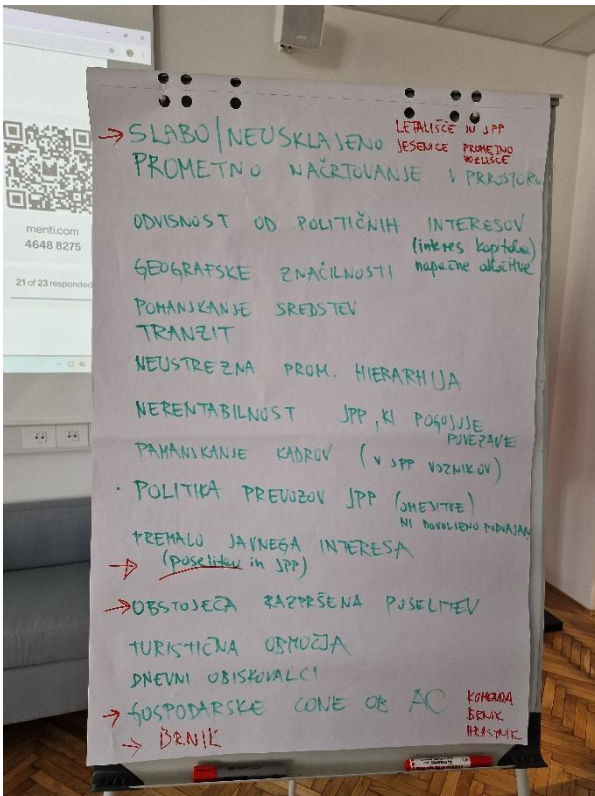 menti.com
4648 8275
21 of 23 responded
→ SLABO/NEUSKLAJENO
LETALIŠČE IN JPP
JESENICE PROMETNO
VOZLIŠČE
PROMETNO NAČRTOVANJE V PRROSTORU
ODVISNOST OD POLITIČNIH INTERESOV
(interes kapitala)
GEOGRAFSKE ZNAČILNOSTI
napačne odločitve
POMANJKANJE SREDSTEV
TRANZIT
NEUSTREZNA PROM. HIERARHIJA
NERENTABILNOST JPP, KI POGOJUJE
POVEZAVE
PAMANJKANJE KADROV (V JPP VOZNIKOV)
· POLITIKA PREVOZOV JPP (OMEJITVE)
NI DOVOLJENO PODVAJAN
PREMALO JAVNEGA INTERESA
→ (poselitev in JPP)
→ OBSTOJEČA RAZPRŠENA POSELITEV
TURISTIČNA OBMOČJA
DNEVNI OBISKOVALCI
→ GOSPODARSKE CONE OB AC
KOMENDA
BRNIK
HRASTNIK
→ BRNIK